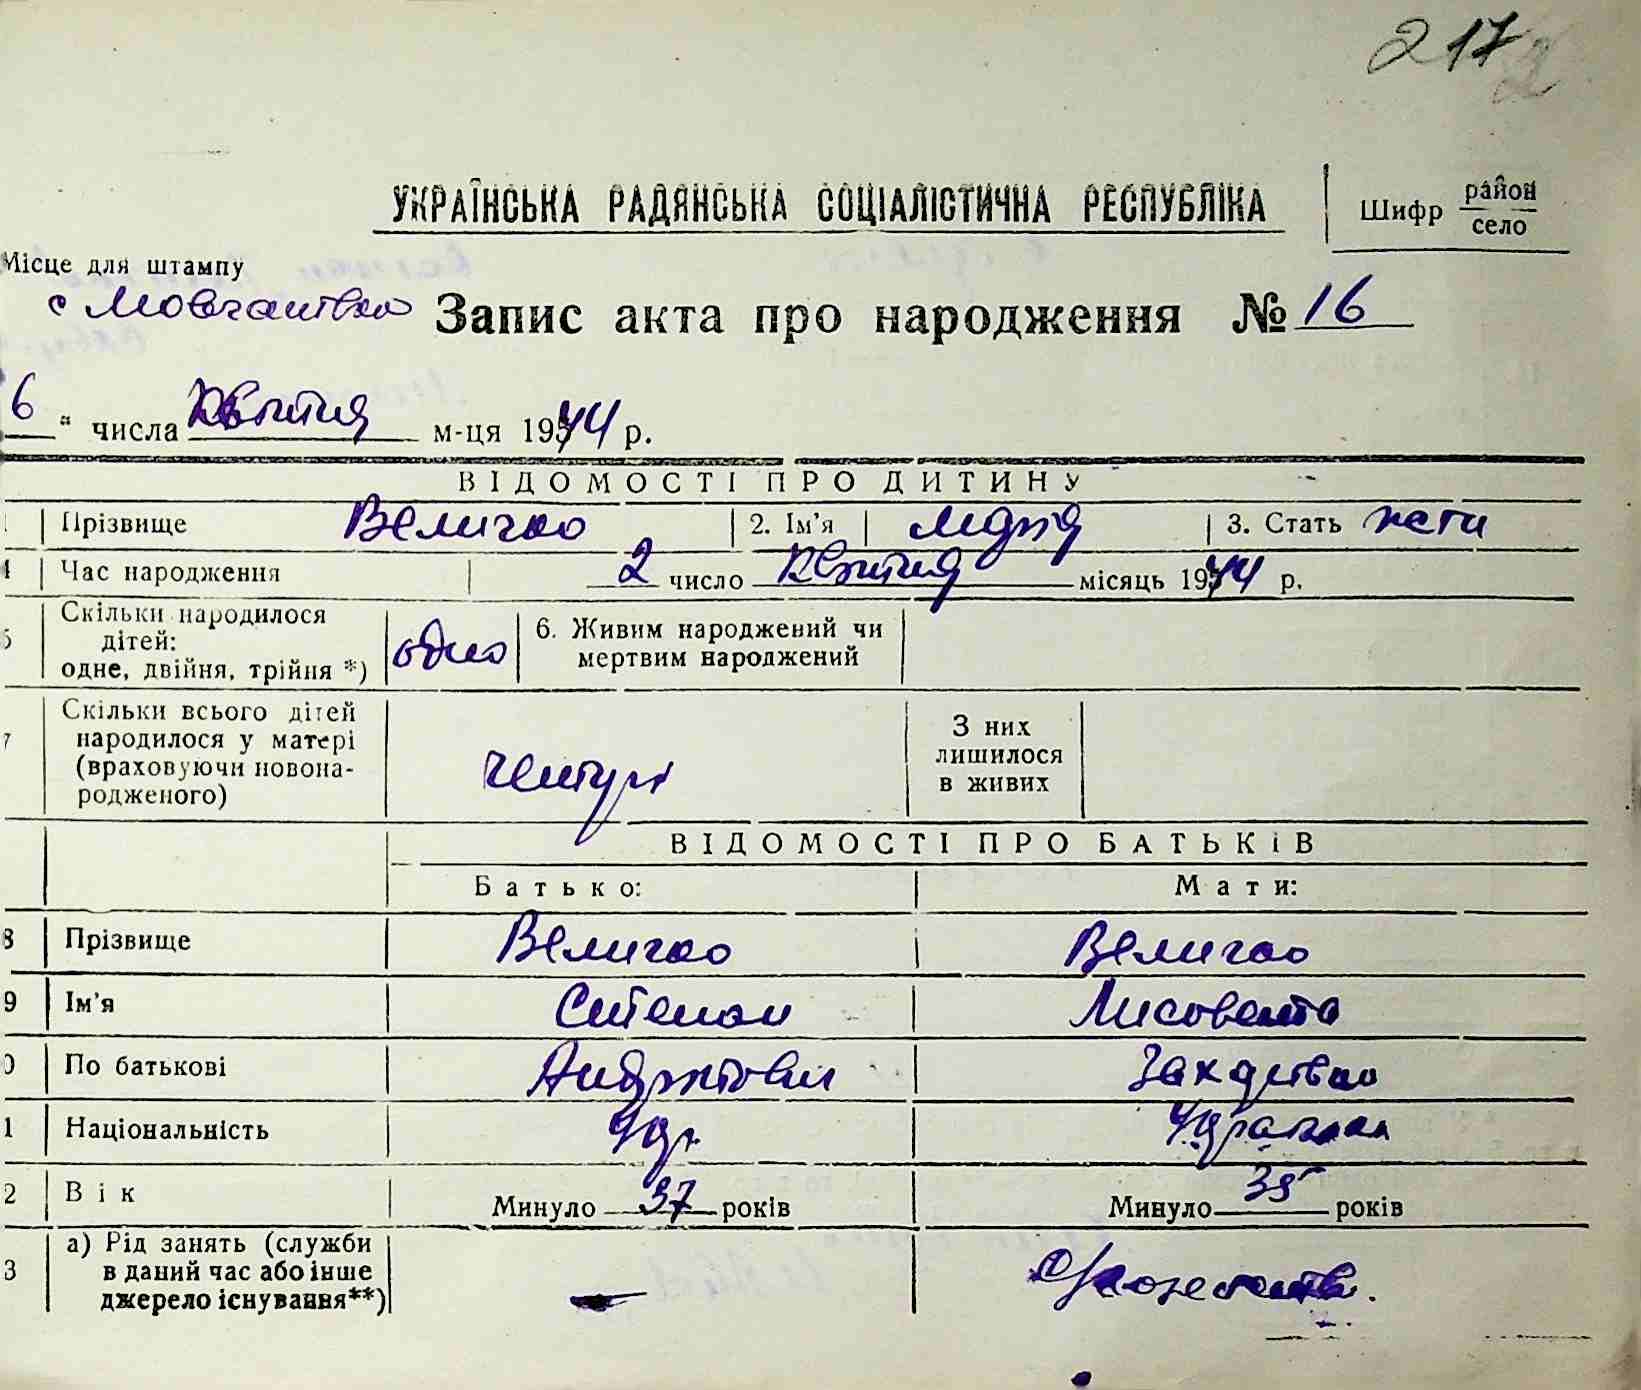 217
УКРАЇНСЬКА РАДЯНСЬКА СОЦІАЛІСТИЧНА РЕСПУБЛІКА
Шифр район село
Місце для штампу
Запис акта про народження № 16
6 " числа квітня м-ця 1944 р.
ВІДОМОСТІ ПРО ДИТИНУ
Прізвище Величко 2. Ім'я Марія 3. Стать
4 Час народження 2 число квітня місяць 1944 р.
5 Скільки народилося дітей: одне, двійня, трійня *) одно 6. Живим народжений чи мертвим народжений
7 Скільки всього дітей народилося у матері (враховуючи новонародженого) чотирі З них лишилося в живих
ВІДОМОСТІ ПРО БАТЬКІВ
Батько: Мати:
8 Прізвище Величко Величко
9 Ім'я Степан Лисовета
0 По батькові Андрійович Захарівна
1 Національність Укр. Українка
2 Вік Минуло 37 років Минуло 35 років
3 а) Рід занять (служби в даний час або інше джерело існування**) —